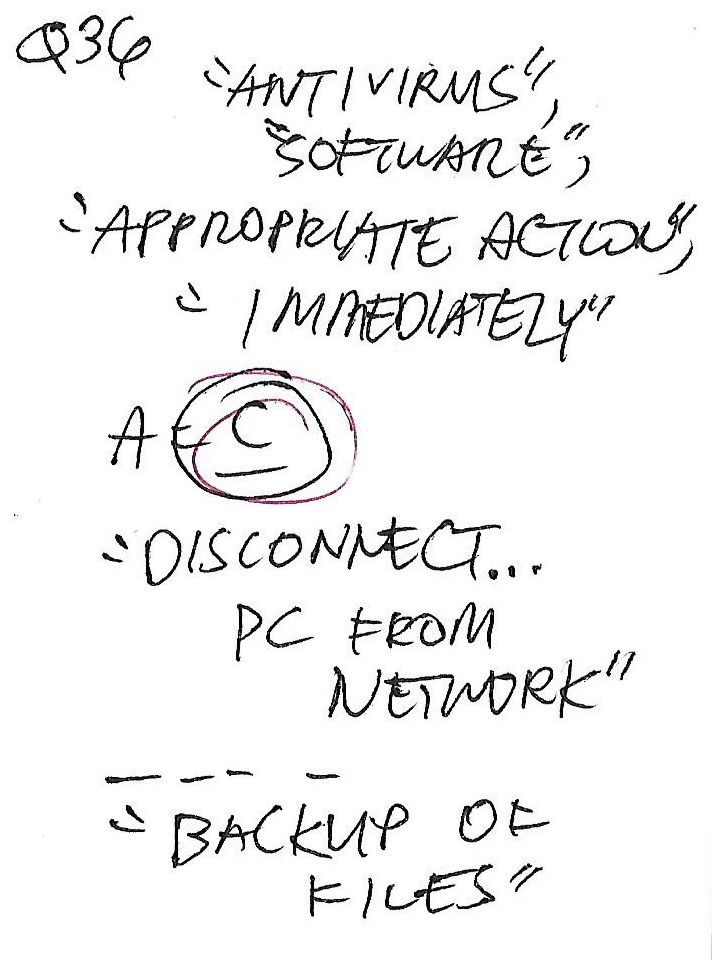 Q36
"ANTIVIRUS",
"SOFTWARE",
"APPROPRIATE ACTION",
"IMMEDIATELY"
A = C
"DISCONNECT...
PC FROM
NETWORK"
— — — —
"BACKUP OF
FILES"